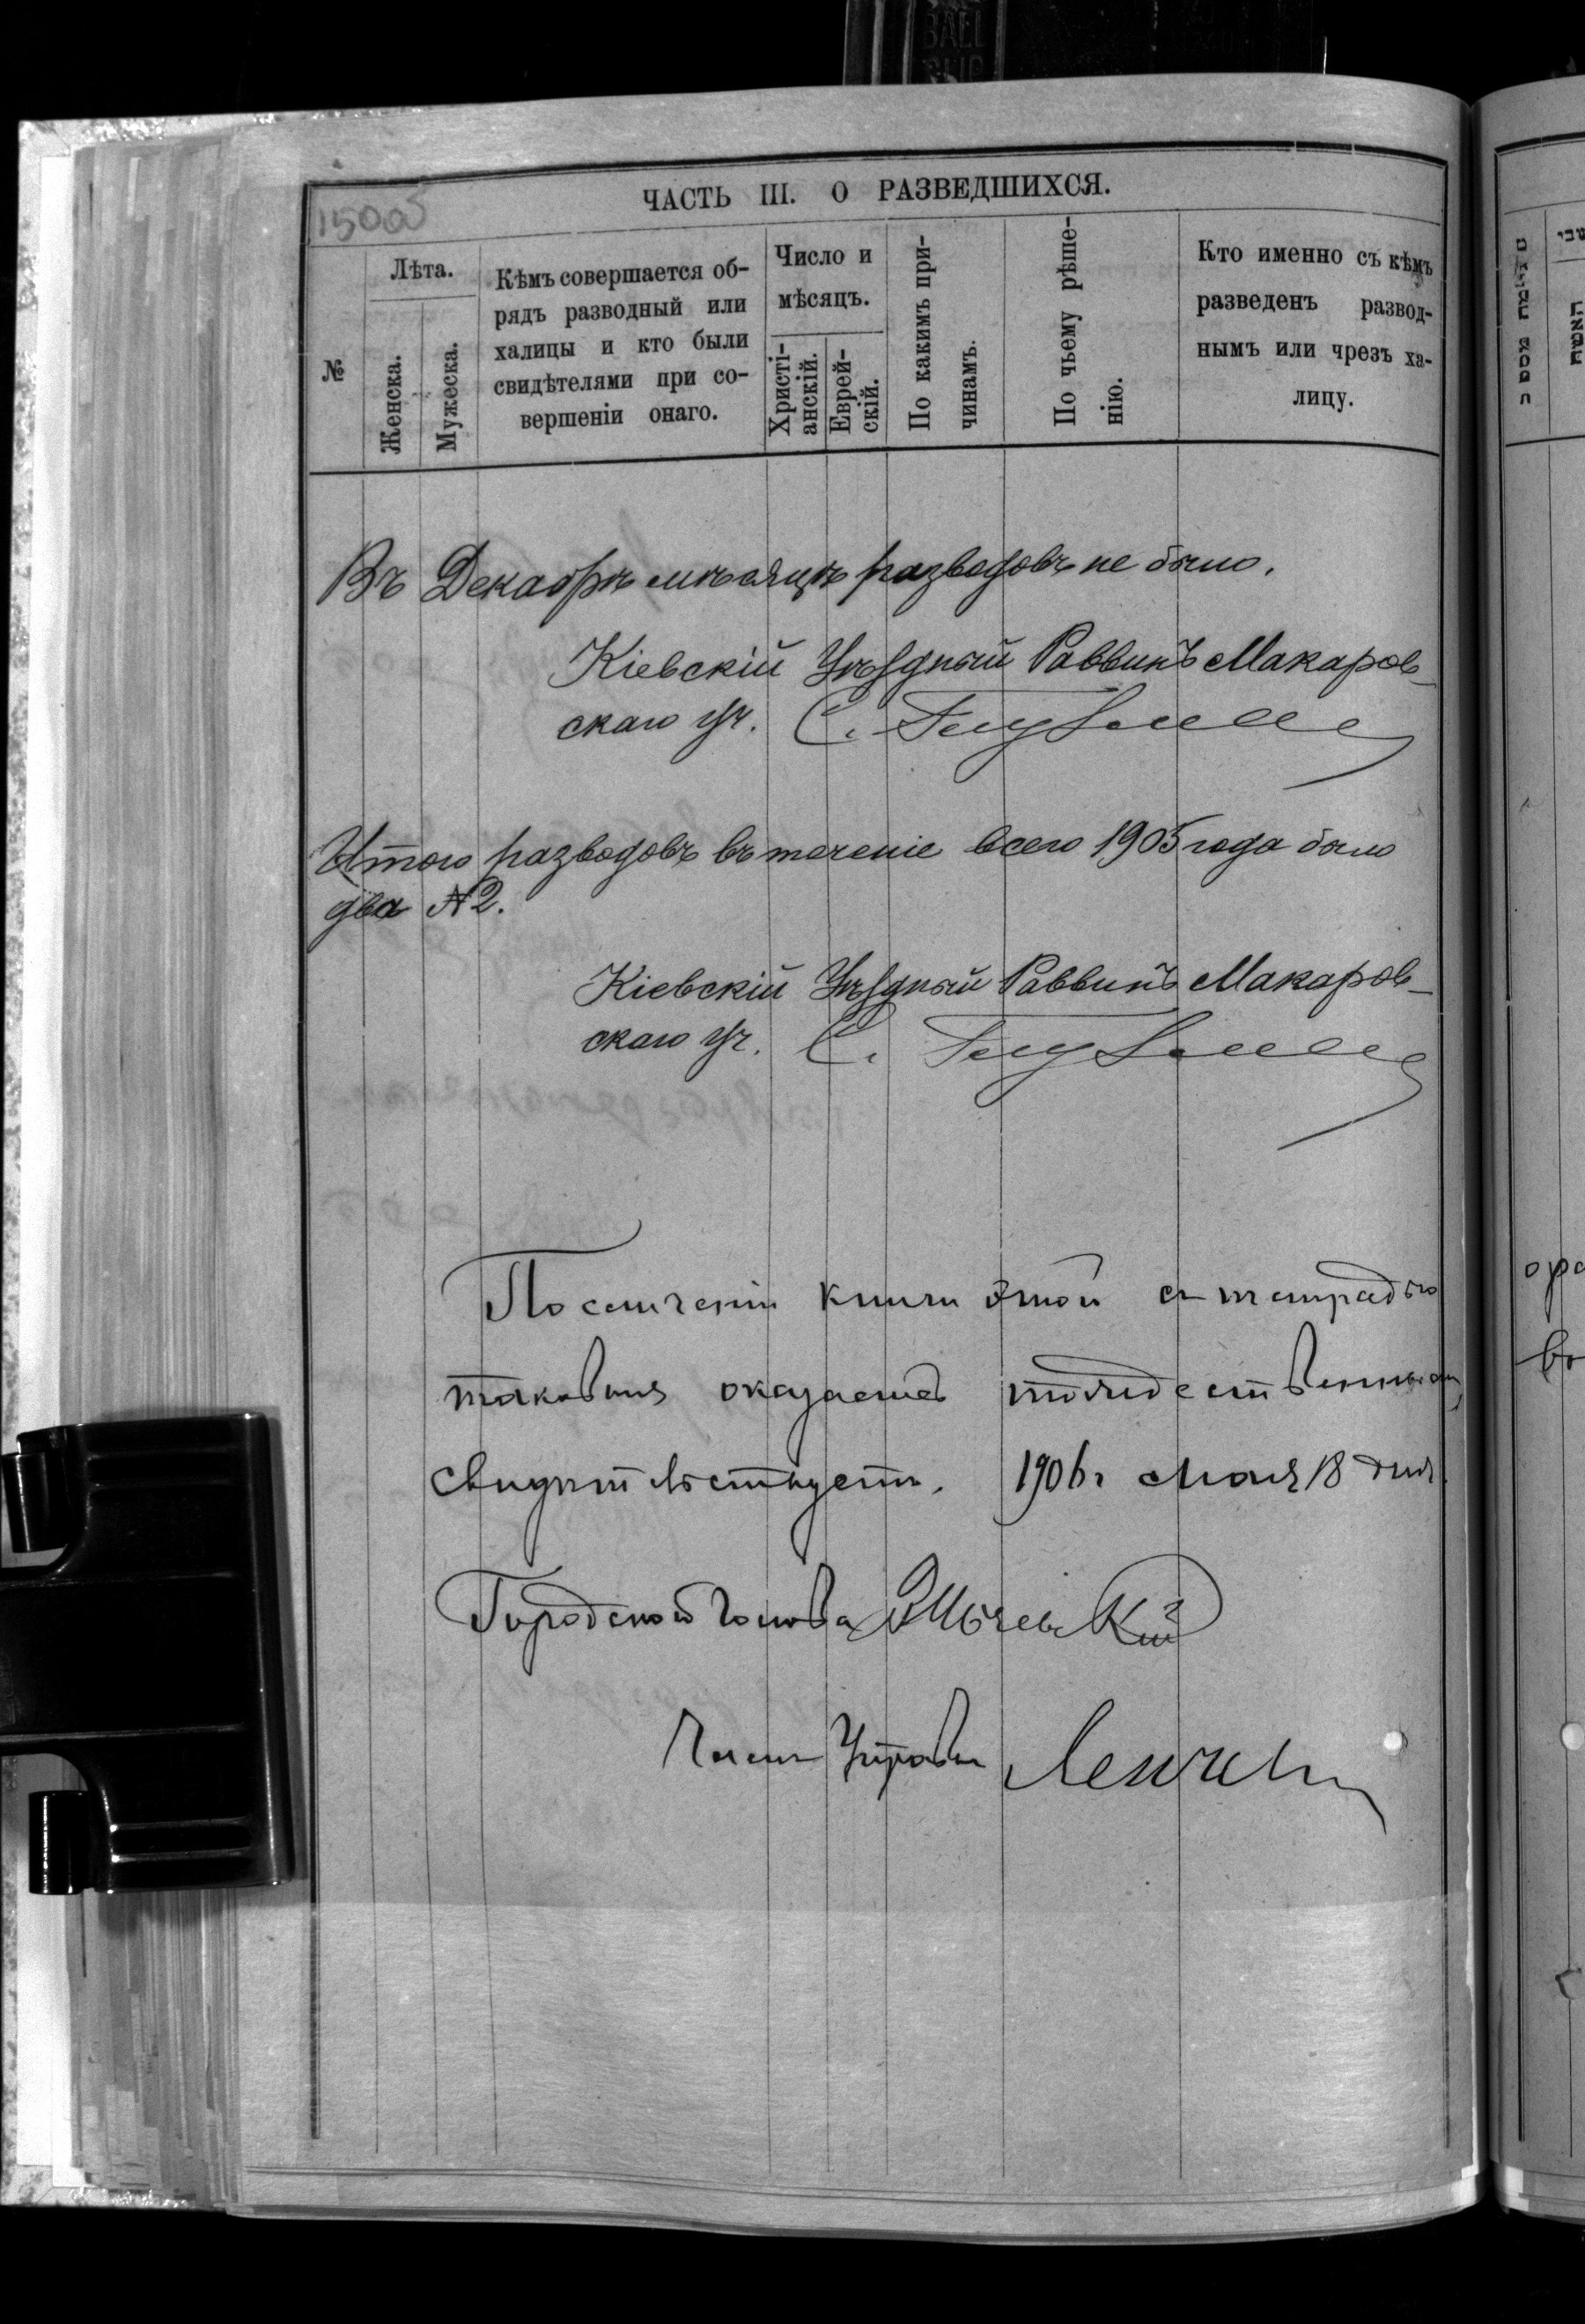 BALL
ЧАСТЬ III. О РАЗВЕДШИХСЯ.
1500б
№
Лѣта.
Женска.
Мужеска.
Кѣмъ совершается об-
рядъ разводный или
халицы и кто были
свидѣтелями при со-
вершеніи онаго.
Число и
мѣсяцъ.
Христі-
анскій.
Еврей-
скій.
По какимъ при-
чинамъ.
По чьему рѣше-
нію.
Кто именно съ кѣмъ
разведенъ развод-
нымъ или чрезъ ха-
лицу.
Въ Декабрѣ мѣсяцѣ разводовъ не было.
Кіевскій Уѣздный Раввинъ Макаров-
скаго уч. С.
Итого разводовъ въ теченіе всего 1905 года было
два № 2.
Кіевскій Уѣздный Раввинъ Макаров-
скаго уч. С.
По сличеніи книги этой съ тетрадью
таковыя оказались тождественными
свидѣтельствуетъ. 1906 г Мая 18 дня.
Городской Голова
Членъ Управы